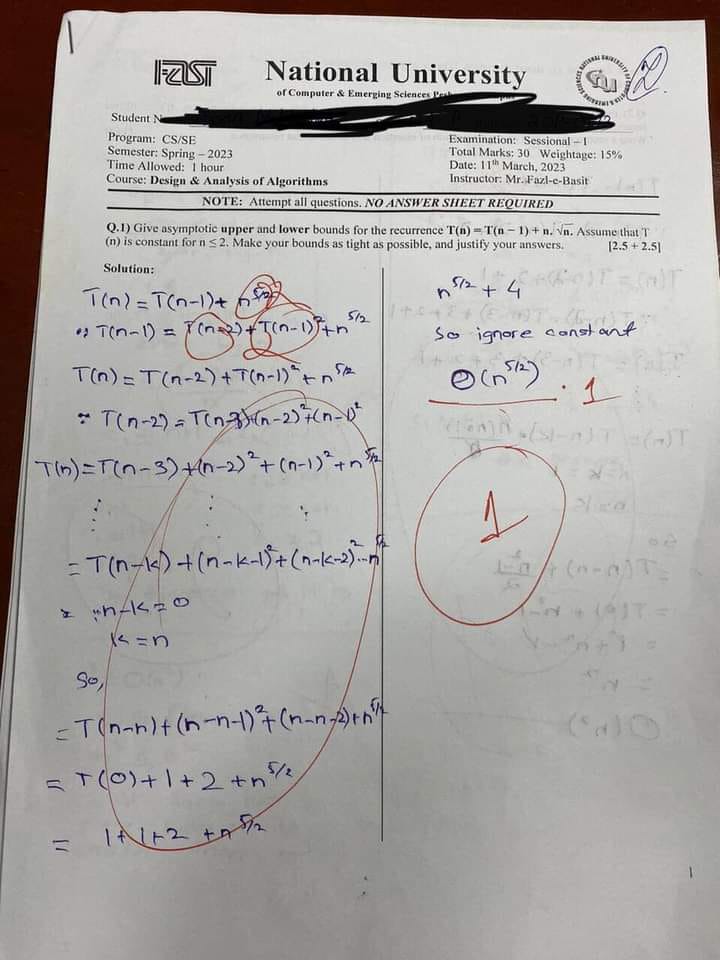 1
FAST
National University
of Computer & Emerging Sciences
2
Student N
Program: CS/SE
Semester: Spring – 2023
Time Allowed: 1 hour
Course: Design & Analysis of Algorithms
Examination: Sessional – I
Total Marks: 30 Weightage: 15%
Date: 11th March, 2023
Instructor: Mr. Fazl-e-Basit
NOTE: Attempt all questions. NO ANSWER SHEET REQUIRED
Q.1) Give asymptotic upper and lower bounds for the recurrence T(n) = T(n – 1) + n. √n. Assume that T
(n) is constant for n ≤ 2. Make your bounds as tight as possible, and justify your answers. [2.5 + 2.5]
Solution:
T(n) = T(n-1) + n^5/2
∵ T(n-1) = T(n-2) + T(n-1)² + n^5/2
T(n) = T(n-2) + T(n-1)² + n^5/2
∵ T(n-2) = T(n-3) + (n-2)² + (n-1)²
T(n) = T(n-3) + (n-2)² + (n-1)² + n^5/2
= T(n-k) + (n-k-1)² + (n-k-2)² ... n^5/2
∵ n-k = 0
k = n
So,
= T(n-n) + (n-n-1)² + (n-n-2) + n^5/2
= T(0) + 1 + 2 + n^5/2
= 1 + 1 + 2 + n^5/2
n^5/2 + 4
So ignore constant
Θ(n^5/2) . 1
1
1